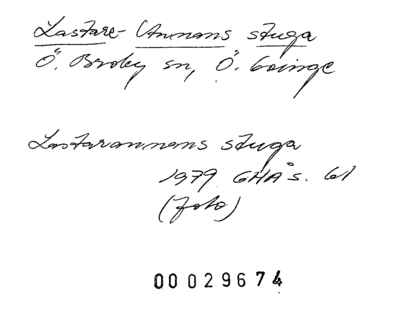 Lastare-Annans stuga
Ö. Broby sn, Ö. Göinge
Lastarannans stuga
1979 GHÅ s. 61
(foto)
00029674